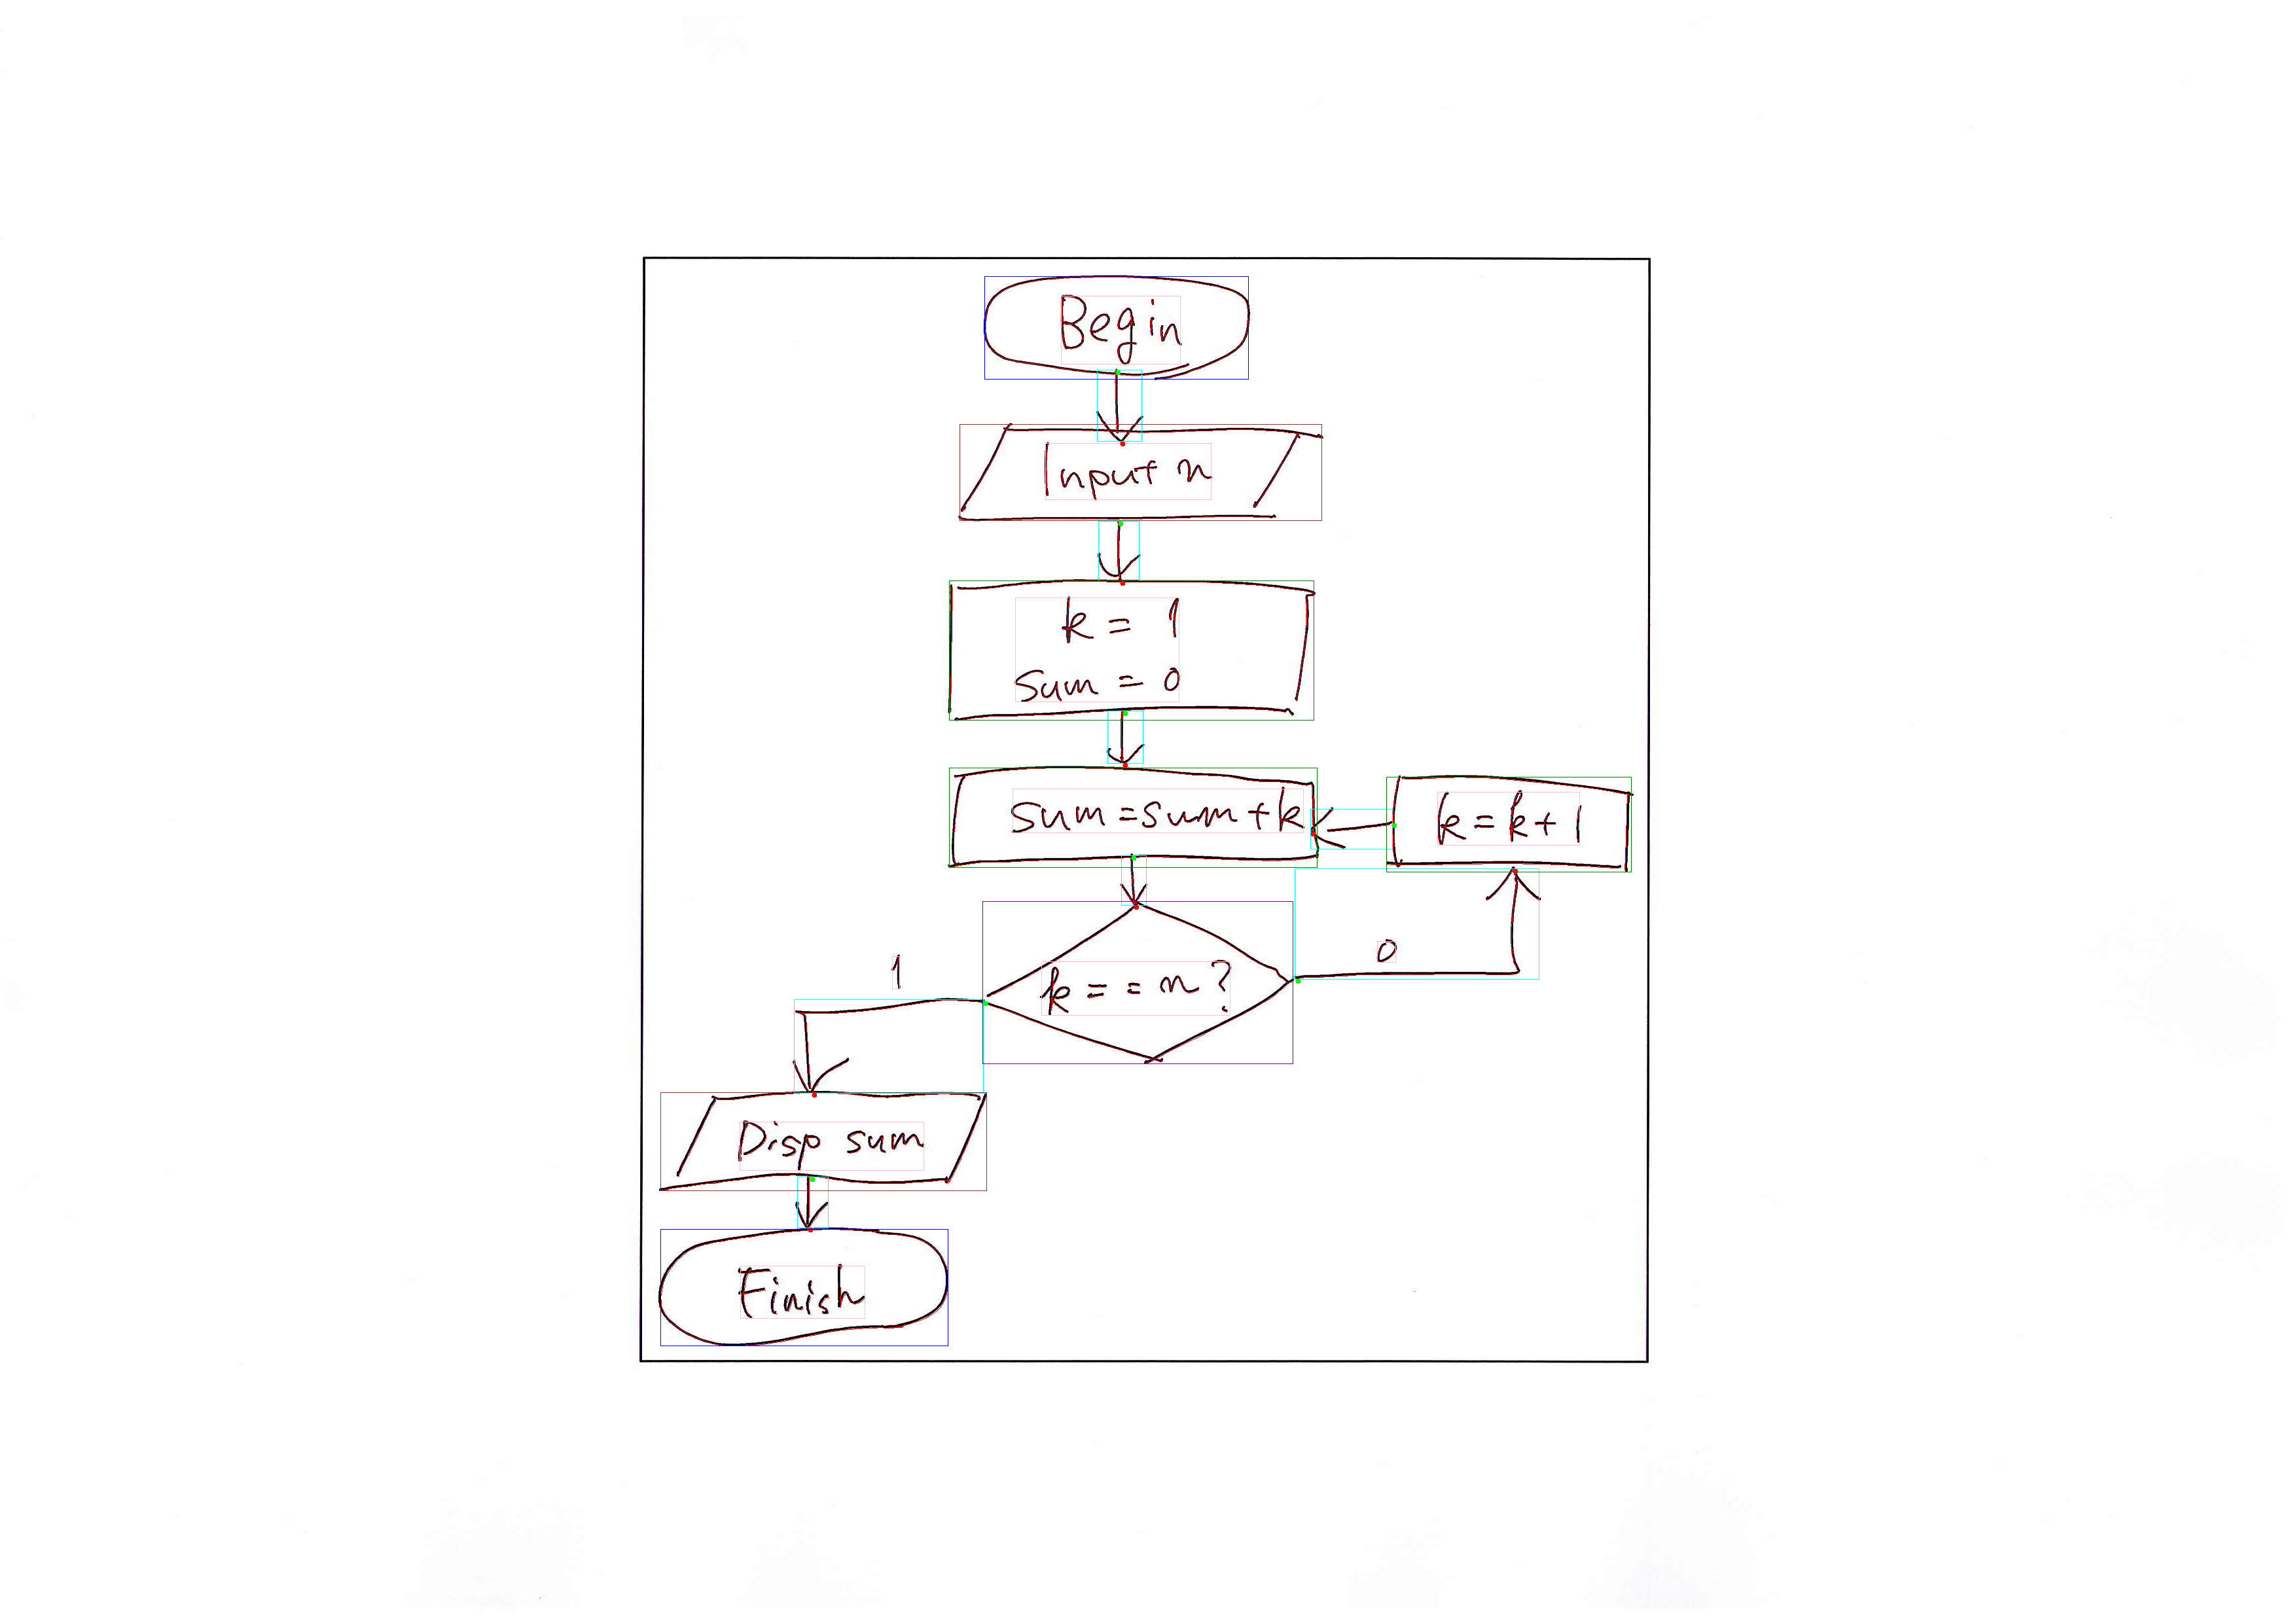 Begin
Input n
k = 1
sum = 0
sum = sum + k
k = k + 1
k = = n ?
1
0
Disp sum
Finish